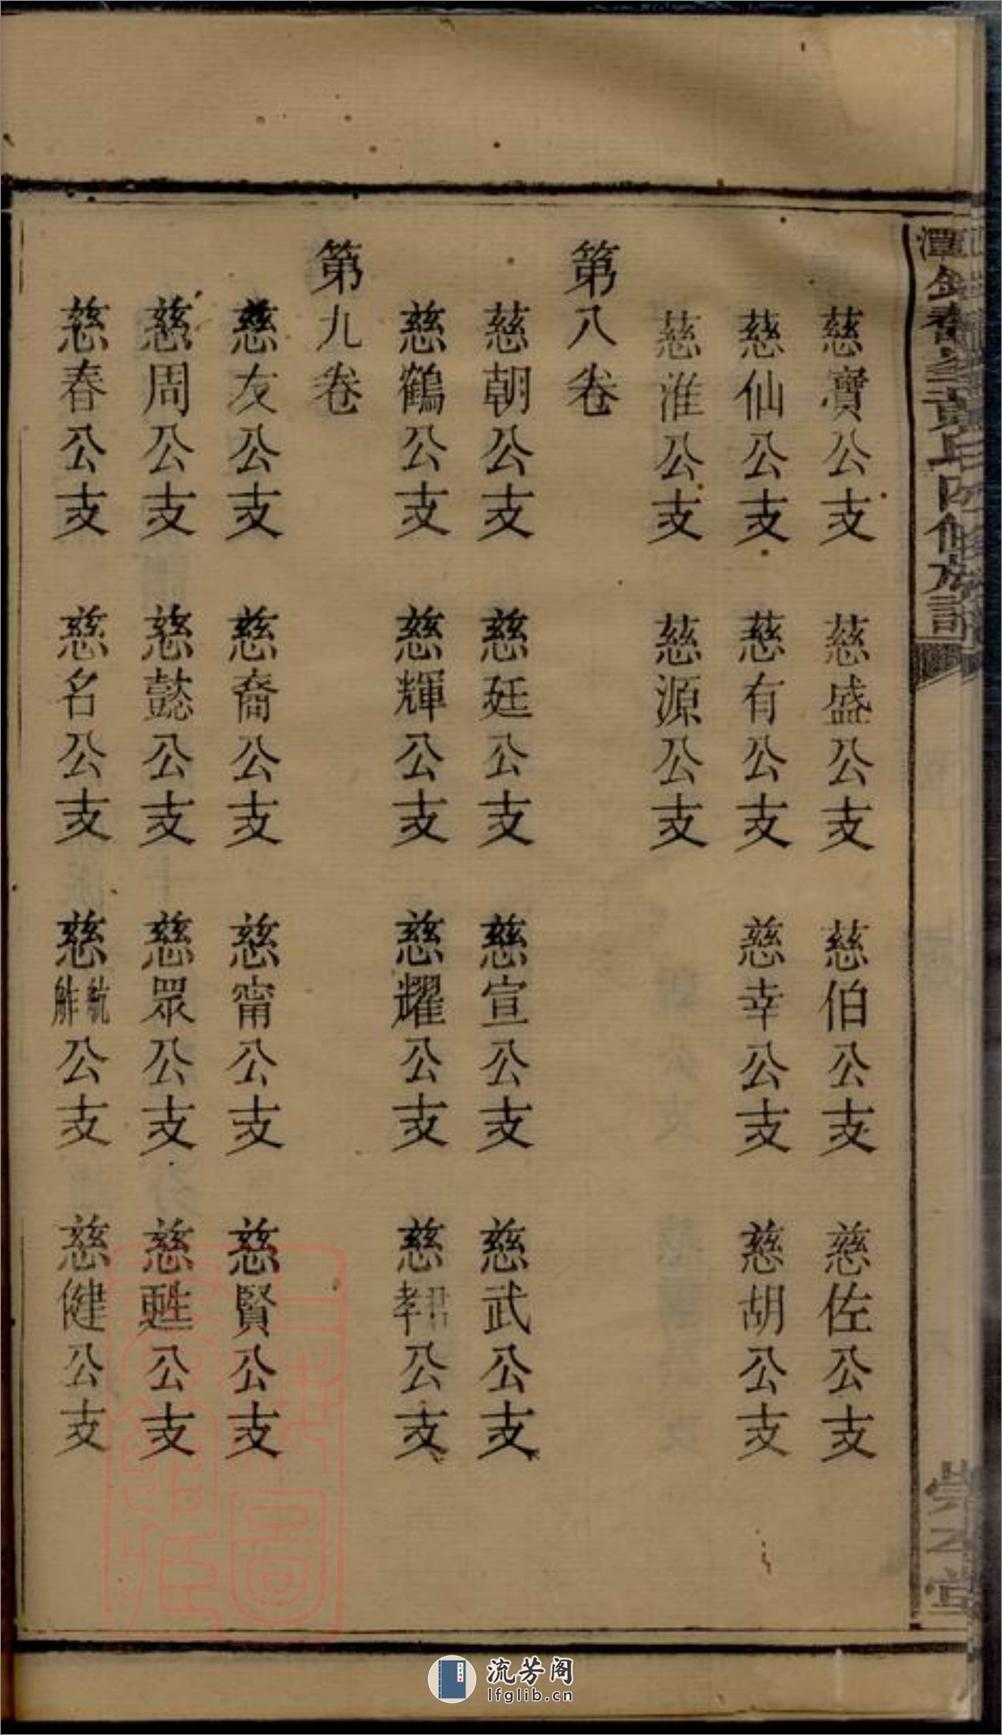 慈寶公支 慈盛公支 慈伯公支 慈佐公支
慈仙公支 慈有公支 慈幸公支 慈胡公支
慈淮公支 慈源公支
第八卷
慈朝公支 慈廷公支 慈宣公支 慈武公支
慈鶴公支 慈輝公支 慈耀公支 慈公支
第九卷
慈友公支 慈裔公支 慈甯公支 慈賢公支
慈周公支 慈懿公支 慈眾公支 慈甦公支
慈春公支 慈名公支 慈航公支 慈健公支
流芳阁
lfglib.cn